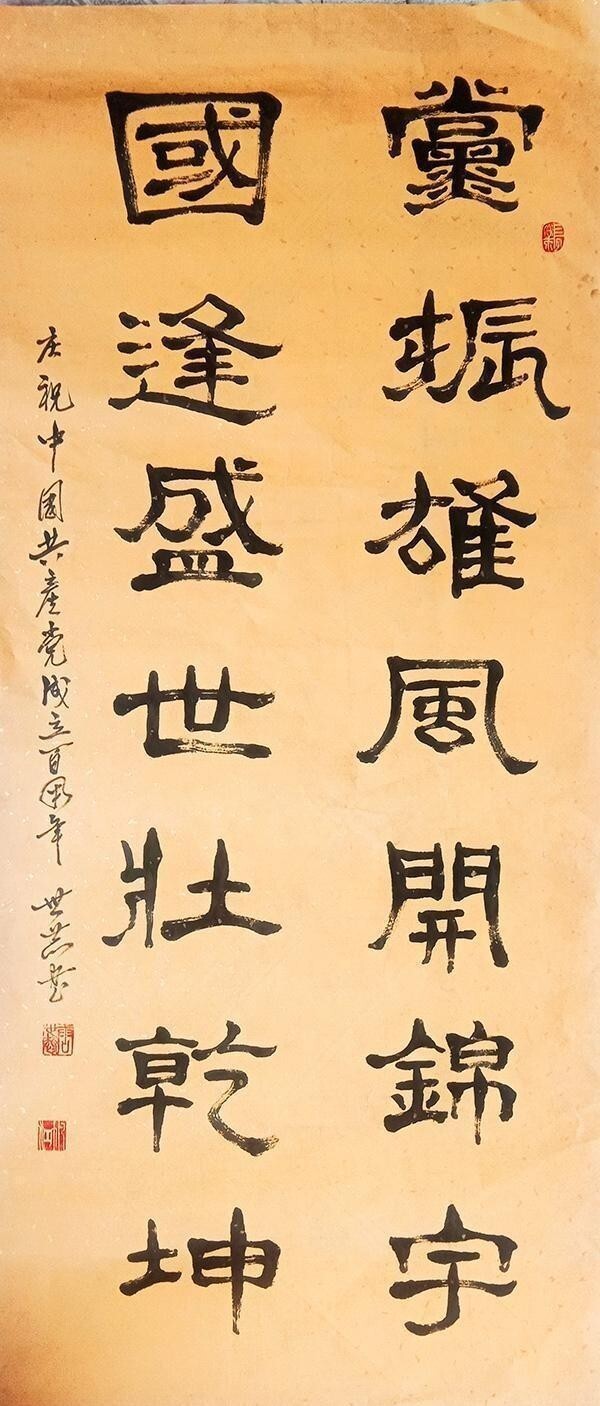 黨振雄風開錦宇
國逢盛世壯乾坤
庆祝中国共產党成立百周年
世芸书